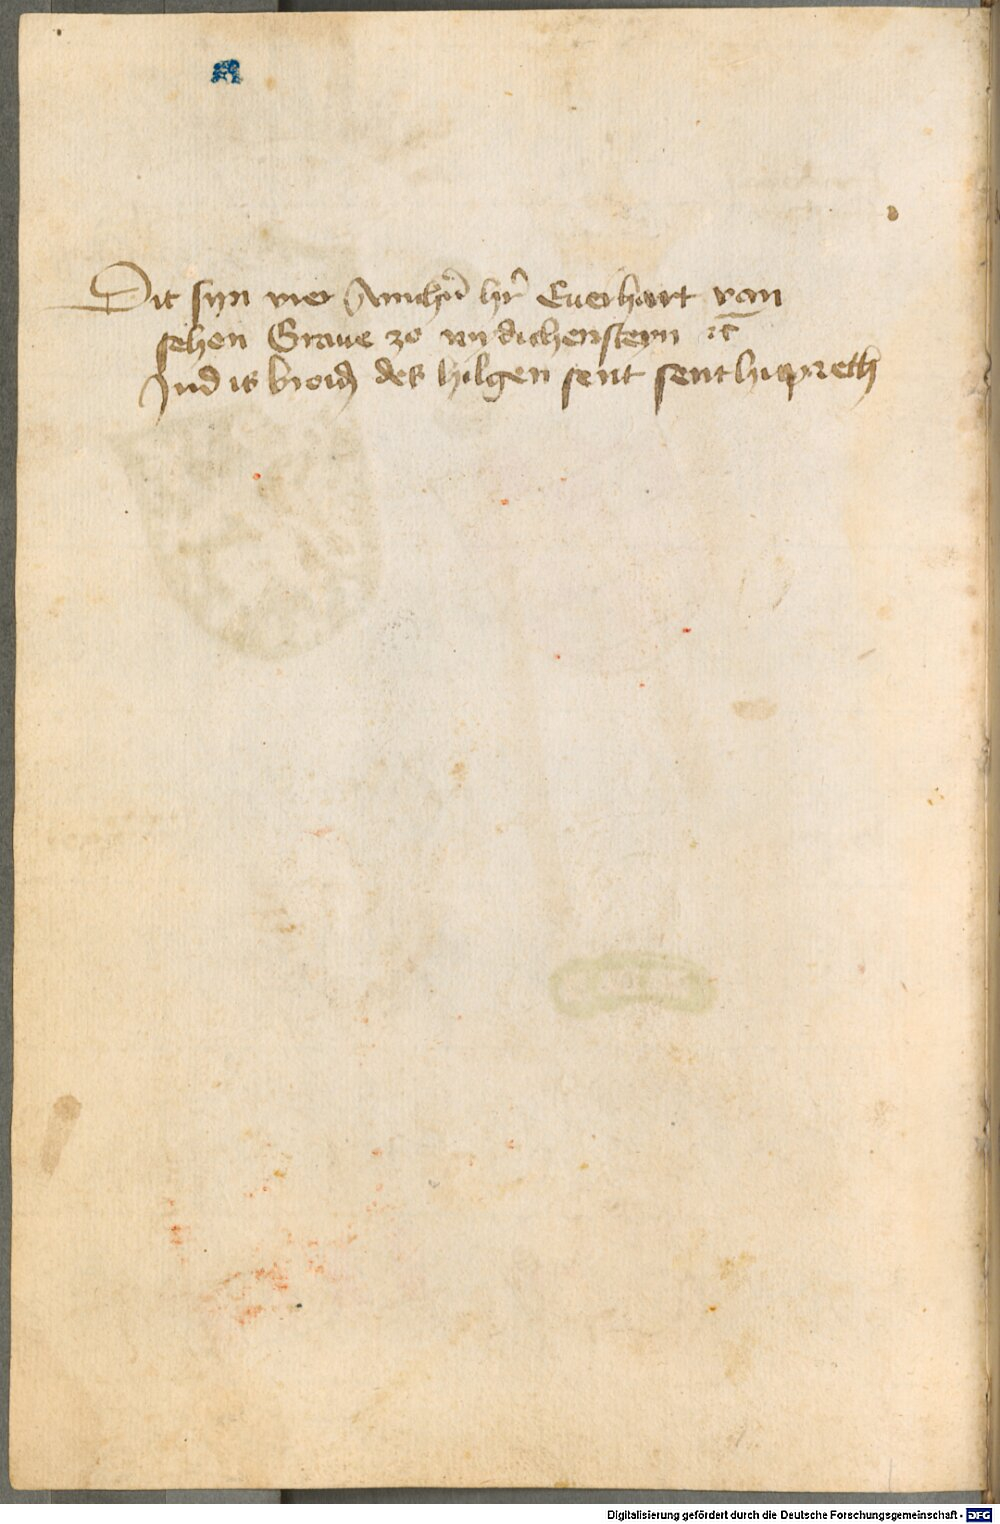 Dit syn vier Anichen her Everhart van
sehen Grave zo wydichensteyn etc
Ind is broid des hilgen sent sent huprecth
Digitalisierung gefördert durch die Deutsche Forschungsgemeinschaft - DFG